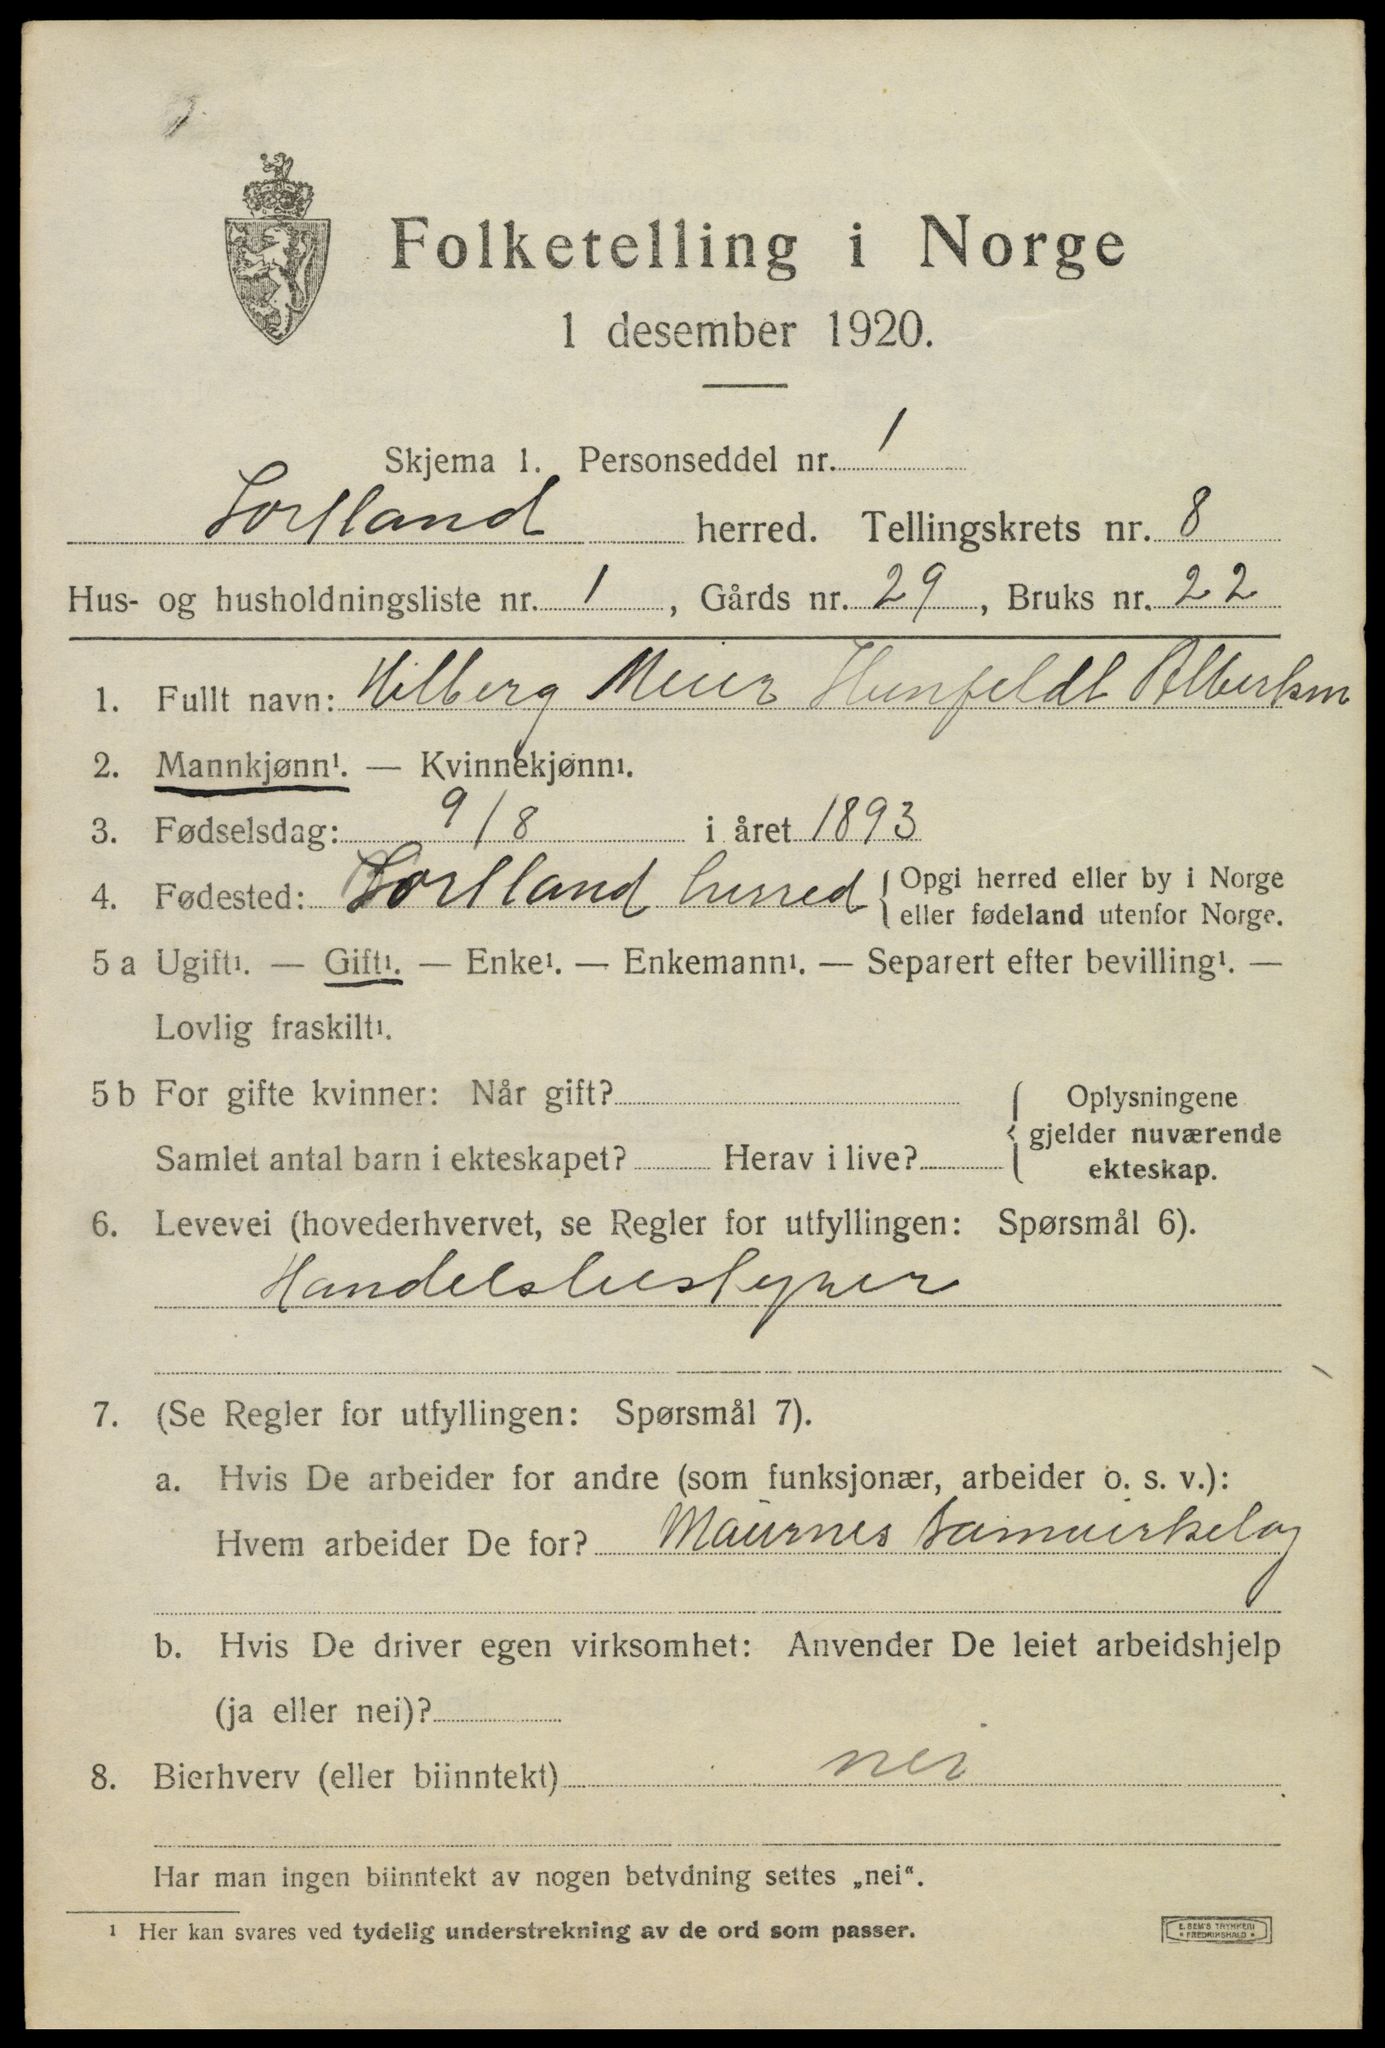 Folketelling i Norge
1 desember 1920.
Skjema 1. Personseddel nr. 1
Sortland herred. Tellingskrets nr. 8
Hus- og husholdningsliste nr. 1, Gårds nr. 29, Bruks nr. 22
1. Fullt navn: Hilberg Meier Hunfeldt Albertsen
2. Mannkjønn¹. — Kvinnekjønn¹.
3. Fødselsdag: 9/8 i året 1893
4. Fødested: Sortland herred {Opgi herred eller by i Norge
eller fødeland utenfor Norge.
5 a Ugift¹. — Gift¹. — Enke¹. — Enkemann¹. — Separert efter bevilling¹. —
Lovlig fraskilt¹.
5 b For gifte kvinner: Når gift? { Oplysningene
gjelder nuværende
Samlet antal barn i ekteskapet? Herav i live?
ekteskap.
6. Levevei (hovederhvervet, se Regler for utfyllingen: Spørsmål 6).
Handelsbestyrer
7. (Se Regler for utfyllingen: Spørsmål 7).
a. Hvis De arbeider for andre (som funksjonær, arbeider o. s. v.):
Hvem arbeider De for? Maurnes Samvirkelag
b. Hvis De driver egen virksomhet: Anvender De leiet arbeidshjelp
(ja eller nei)?
8. Bierhverv (eller biinntekt) nei
Har man ingen biinntekt av nogen betydning settes „nei“.
¹ Her kan svares ved tydelig understrekning av de ord som passer.
E. SEM'S TRYKKERI
* FREDRIKSHALD *